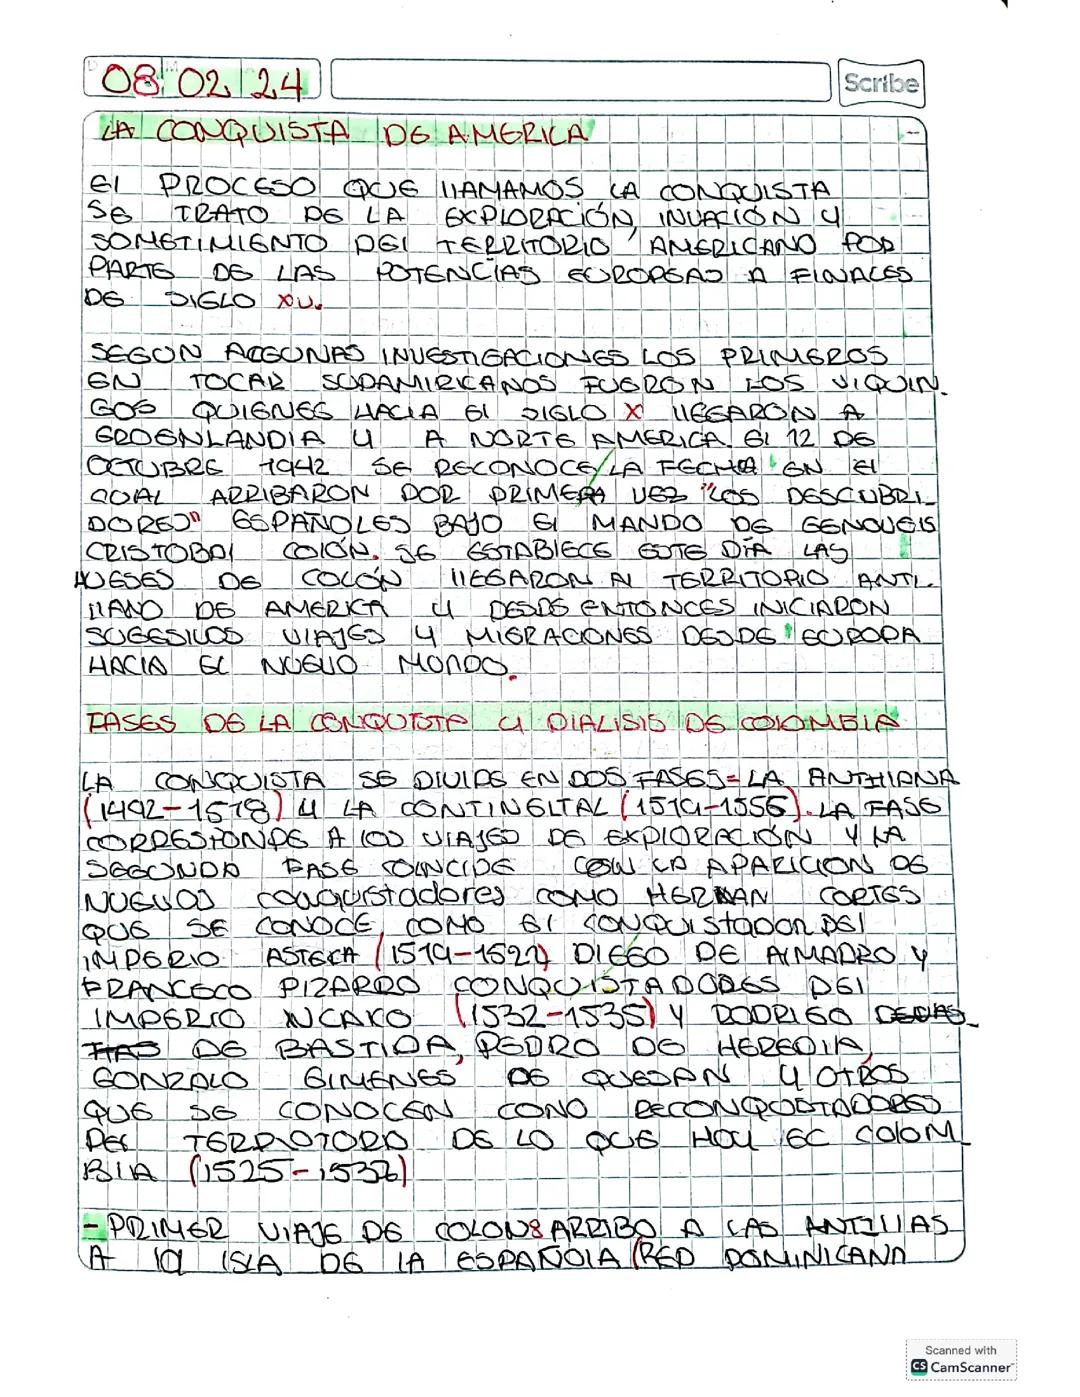 08 02 24
Scribe
LA CONQUISTA DE AMERICA
El PROCESO QUE llAMAMOS LA CONQUISTA
SE TRATO DE LA EXPLORACIÓN, INVACIÓN Y
SOMETIMIENTO DEl TERRITORIO AMERICANO POR
PARTE DE LAS POTENCÍAS EUROPEAS A FINALES
DE SIGLO XV.
SEGUN ALGUNAS INVESTIGACIONES LOS PRIMEROS
EN TOCAR SUDAMIRICANOS FUERON LOS VIQUIN-
GOS QUIENES HACIA El SIGLO X llEGARON A
GROENLANDIA Y A NORTE AMERICA. El 12 DE
OCTUBRE 1942 SE RECONOCE LA FECHA EN El
CUAL ARRIBARON POR PRIMERA VEZ "LOS DESCUBRI-
DORES" ESPAÑOLES BAJO El MANDO DE GENOVEIS
CRISTOBAl COlÓN. SE ESTABlECE ESTE DÍA LAS
NUESES DE COLÓN llEGARON Al TERRITORIO ANTI-
llANO DE AMERICA Y DESDE ENTONCES INICIARON
SUGESILOS VIAJES Y MIGRACIONES DESDE EUROPA
HACIA EL NUEVO MONDO.
FASES DE LA CONQUISTA Y DIALISIS DE COlOMBIA
LA CONQUISTA SE DIVIDE EN DOS FASES= LA ANTHIANA
(1492-1518) Y LA CONTINGITAL (1519-1556). LA FASE
CORRESPONDE A LOS VIAJES DE EXPlORACIÓN Y LA
SEGUNDA FASE COINCIDE CON LA APARICION DE
NUEVOS conquistadores COMO HERNAN CORTES
QUE SE CONOCE COMO El CONQUIStADOR DEl
IMPERIO ASTECA (1519-1522) DIEGO DE AlMADRO Y
FRANCECO PIZARRO CONQUISTADORES DEl
IMPERIO NCAKO (1532-1535) Y RODRIGO
DE BASTIDA, PEDRO DE HEREDIA,
GONZALO GIMENES DE QUESAN Y OTROS
QUE SE CONOCEN CONO RECONQUSTADORES
DEL TERRIOTORO DE LO QUE HOY EC COlOM-
BIA (1525-1538)
- PRIMER VIAJE DE COLON: ARRIBO A LAS ANTIllAS
A la ISLA DE lA ESPAÑOlA (RED DOMINICANA
Scanned with
CS CamScanner